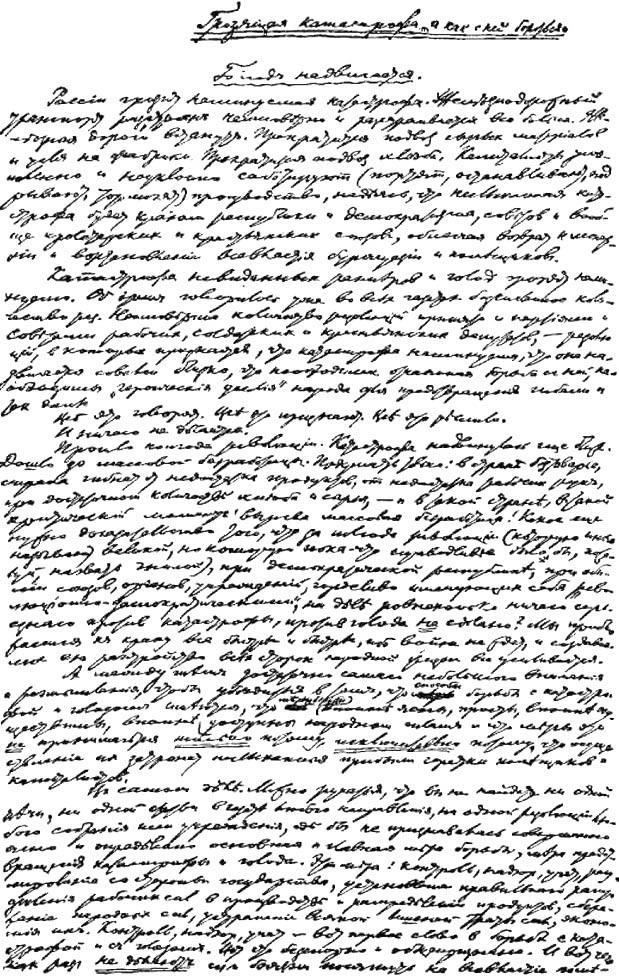 Грозящая катастрофа и как с ней бороться
Голод надвигается.
России грозит неминуемая катастрофа. Железнодорожный
транспорт расстроен неимоверно и расстраивается все больше. Же-
лезные дороги встанут. Прекратится подвоз сырых материалов
и угля на фабрики. Прекратится подвоз хлеба. Капиталисты умы-
шленно и неуклонно саботируют (портят, останавливают, под-
рывают, тормозят) производство, надеясь, что неслыханная ката-
строфа будет крахом республики и демократизма, советов и вооб-
ще пролетарских и крестьянских союзов, облегчая возврат к монар-
хии и восстановление всевластия буржуазии и помещиков.
Катастрофа невиданных размеров и голод грозят неми-
нуемо. Об этом говорилось уже во всех газетах бесчисленное коли-
чество раз. Неимоверное количество резолюций принято и партиями и
Советами рабочих, солдатских и крестьянских депутатов, — резолю-
ций, в которых признается, что катастрофа неминуема, что она на-
двигается совсем близко, что необходима отчаянная борьба с ней, не-
обходимы „героические усилия" народа для предотвращения гибели и
так далее.
Всѣ это говорят. Всѣ это признают. Всѣ это рѣшили.
И ничего не дѣлается.
Прошло полгода революции. Катастрофа надвинулась еще ближе.
Дошло до массовой безработицы. Подумать только: в странѣ безтоварье,
страна гибнет от недостатка продуктов, от недостатка рабочих рук,
при достаточном количествѣ хлѣба и сырья, — и в такой странѣ, в такой
критический момент выросла массовая безработица! Какое еще
нужно доказательство того, что за полгода революции (которую иные
называют великой, но которую пока-что справедливее было бы, пожа-
луй, назвать гнилой), при демократической республикѣ, при оби-
лии союзов, органов, учреждений, горделиво именующих себя „рево-
люционно-демократическими", на дѣлѣ ровнехонько ничего серь-
езного против катастрофы, против голода не сдѣлано? Мы прибли-
жаемся к краху все быстрее и быстрее, ибо война не ждет, и создавае-
мое ею расстройство всѣх сторон народной жизни все усиливается.
А между тѣм достаточно самого небольшого внимания
и размышления, чтобы убедиться в том, что способы борьбы с катастро-
фой и голодом имеются, что меры борьбы вполнѣ ясны, просты, вполнѣ осу-
ществимы, вполнѣ доступны народным силам и что меры эти
не принимаются только потому, исключительно потому, что осуще-
ствление их затронет неслыханные прибыли горстки помещиков и
капиталистов.
В самом дѣлѣ. Можно ручаться, что вы не найдете ни одной
рѣчи, ни одной статьи в газетѣ любого направления, ни одной резолюции лю-
бого собрания или учреждения, где бы не признавалась совершенно
ясно и определенно основная и главная мера борьбы, мера предот-
вращения катастрофы и голода. Эта мера: контроль, надзор, учет, регу-
лирование со стороны государства, установление правильного распре-
деления рабочих сил в производствѣ и распределении продуктов, сбере-
жение народных сил, устранение всякой лишней траты сил, эконо-
мия их. Контроль, надзор, учет — вот первое слово в борьбѣ с ката-
строфой и с голодом. Вот что бесспорно и общепризнано. И вот чего
как раз не дѣлают из боязни посягнуть на всевластие поме-